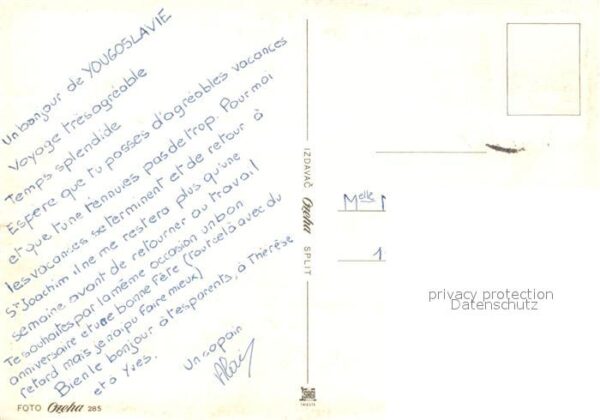 Un bonjour de YOUGOSLAVIE
Voyage très agréable
Temps splendide
Espère que tu passes d'agréables vacances
et que tu ne t'ennuies pas de trop. Pour moi
les vacances se terminent et de retour à
St Joachim il ne me restera plus qu'une
semaine avant de retourner au travail
Te souhaites par la même occasion un bon
anniversaire et une bonne fête (tout cela avec du
retard mais je n'ai pu faire mieux)
Bien le bonjour à tes parents, à Thérèse
et à Yves.
Un copain
Alain
FOTO Ozeha 285
IZDAVAČ Ozeha SPLIT
Melle
1
privacy protection
Datenschutz